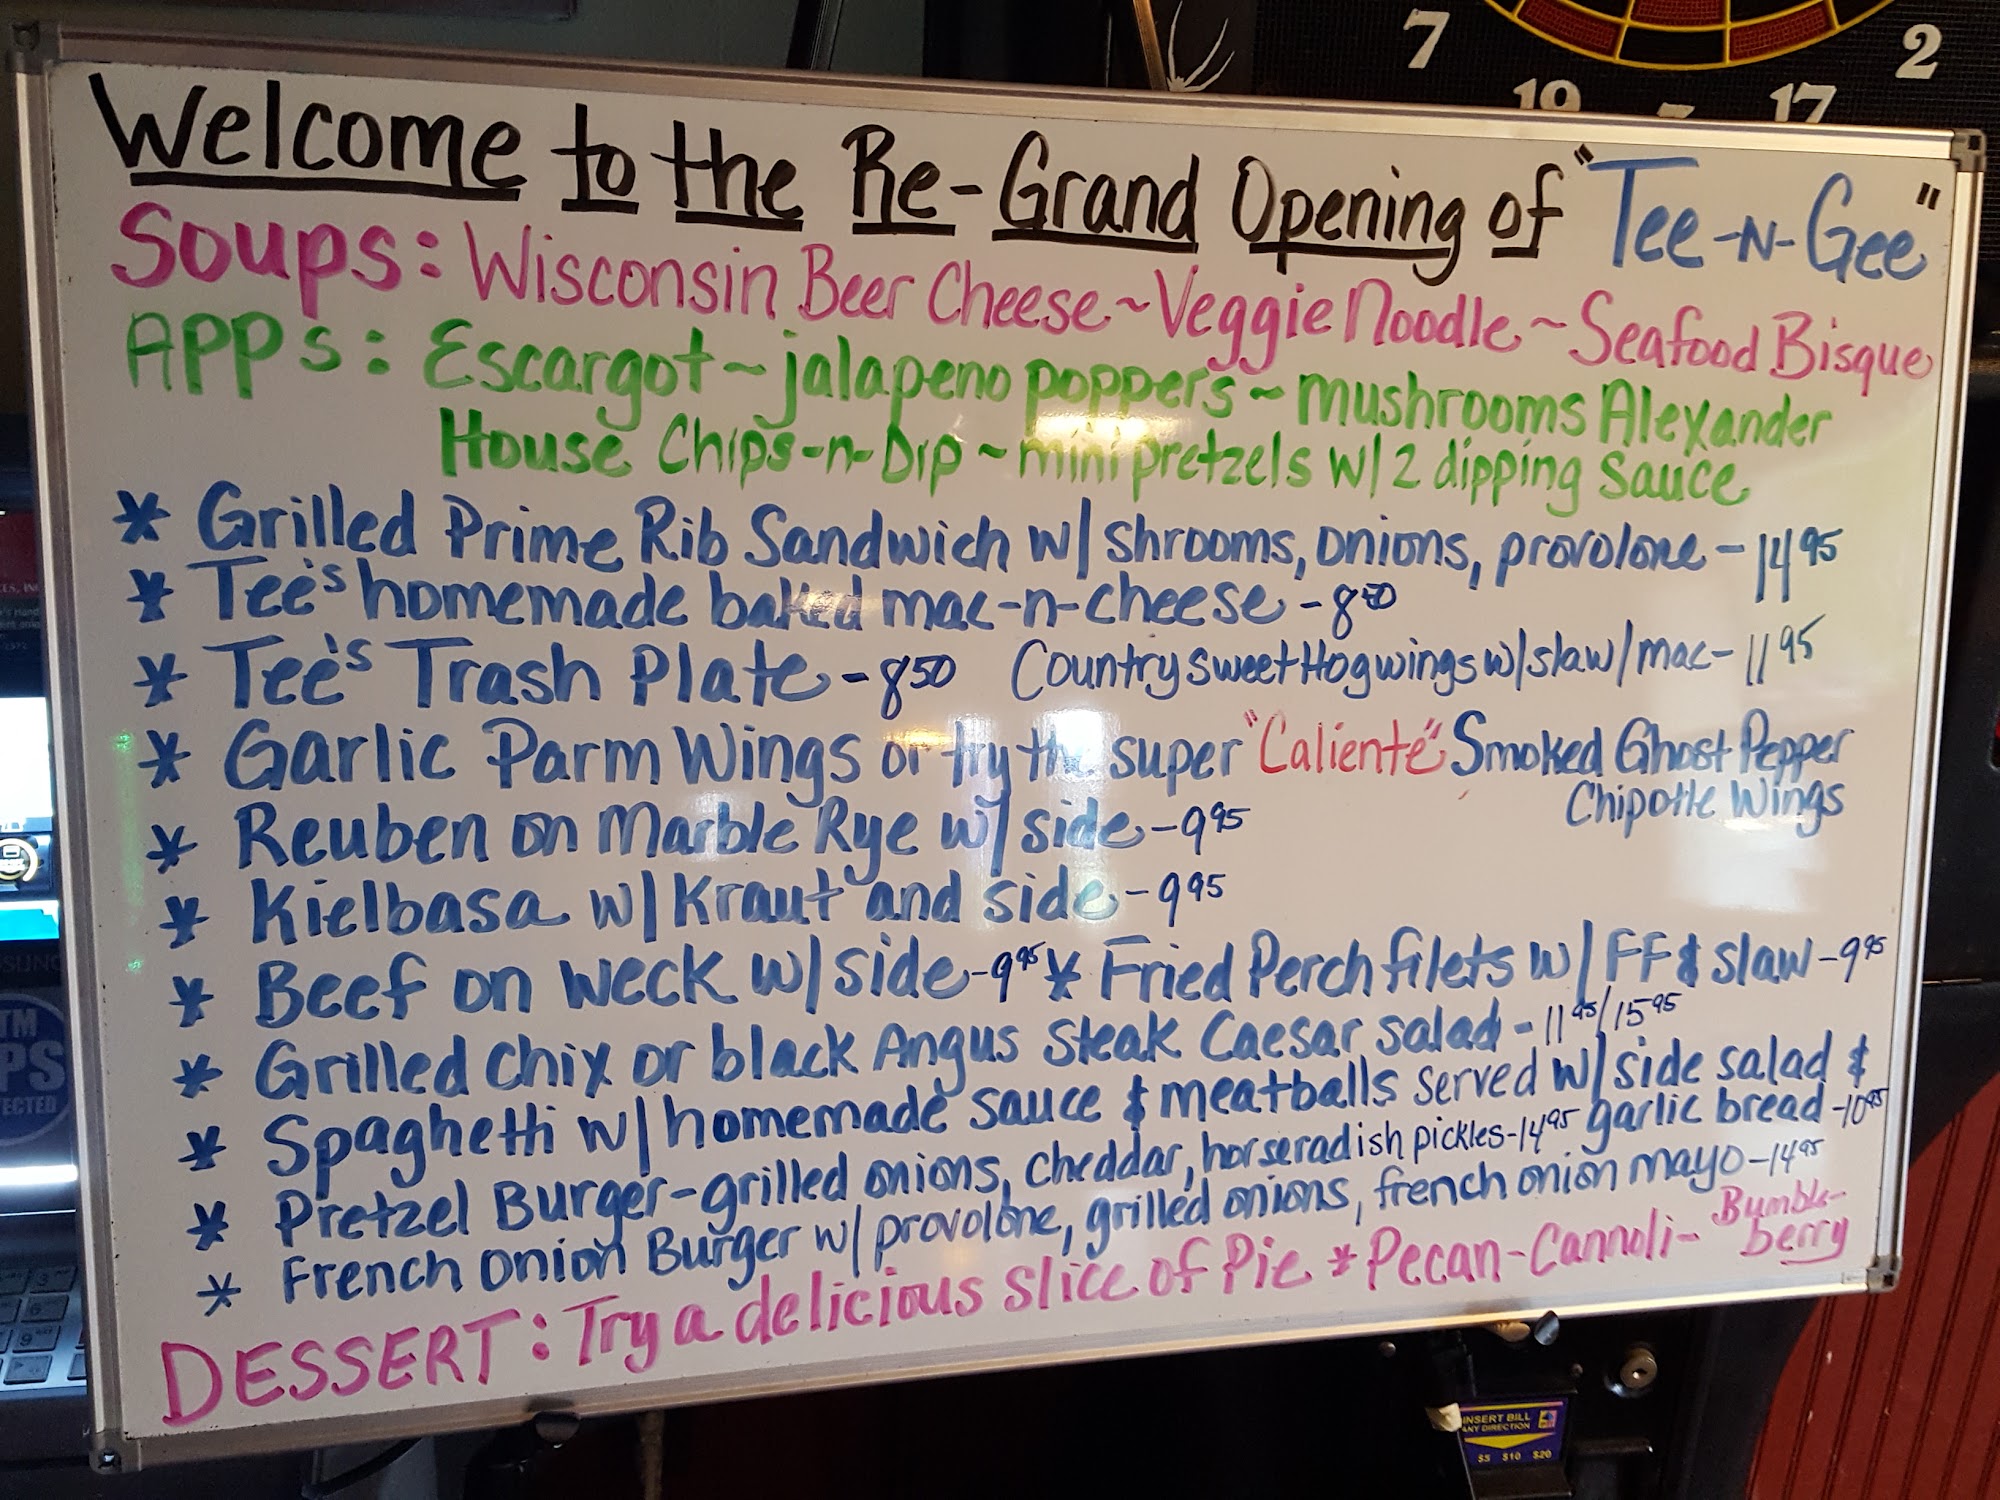 Welcome to the Re-Grand Opening of "Tee-N-Gee"
Soups: Wisconsin Beer Cheese ~ Veggie Noodle ~ Seafood Bisque
APPs: Escargot ~ jalapeno poppers ~ mushrooms Alexander
House Chips-n-Dip ~ mini pretzels w/ 2 dipping sauce
* Grilled Prime Rib Sandwich w/ shrooms, onions, provolone - 14 95
* Tee's homemade baked mac-n-cheese - 8 50
* Tee's Trash Plate - 8 50 Country sweet Hogwings w/slaw/mac - 11 95
* Garlic Parm Wings or try the super "Caliente" Smoked Ghost Pepper
Chipotle Wings
* Reuben on Marble Rye w/ side - 9 95
* Kielbasa w/ Kraut and side - 9 95
* Beef on weck w/ side - 9 95 * Fried Perch filets w/ FF & slaw - 9 95
* Grilled chix or black Angus steak Caesar salad - 11 95/15 95
* Spaghetti w/ homemade sauce & meatballs served w/ side salad &
garlic bread - 10 95
* Pretzel Burger - grilled onions, cheddar, horseradish pickles - 14 95
* French Onion Burger w/ provolone, grilled onions, french onion mayo - 14 95
DESSERT: Try a delicious slice of Pie * Pecan - Cannoli - Bumble-
berry
7
19
17
2
INSERT BILL
ANY DIRECTION
$5 $10 $20